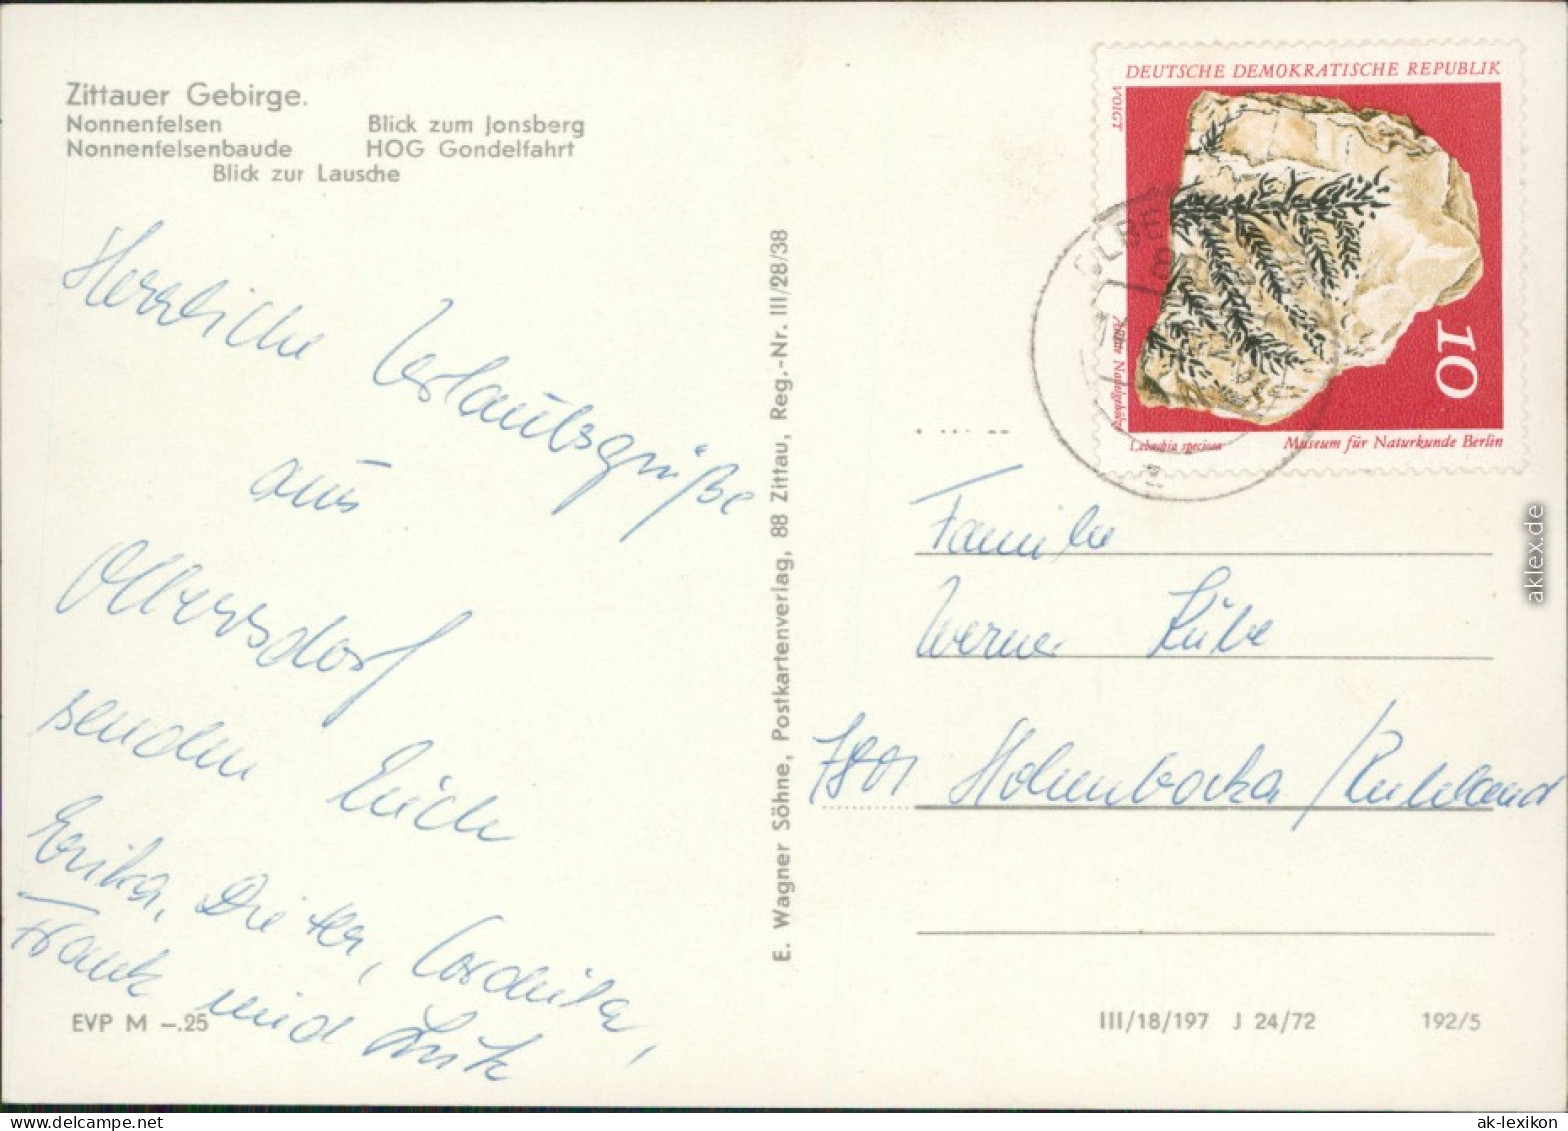 Zittauer Gebirge.
Nonnenfelsen Blick zum Jonsberg
Nonnenfelsenbaude HOG Gondelfahrt
Blick zur Lausche
Herrliche Urlaubsgrüße
aus
Olbersdorf
senden Euch
Erika, Dieter, Cordula,
Frank und
EVP M –.25
E. Wagner Söhne, Postkartenverlag, 88 Zittau, Reg.-Nr. III/28/38
DEUTSCHE DEMOKRATISCHE REPUBLIK
VOIGT
10
Lebachia speciosa
Museum für Naturkunde Berlin
Familie
Werner
7801 Hohenbocka /Ruhland
III/18/197 J 24/72 192/5
aklex.de
ak-lexikon